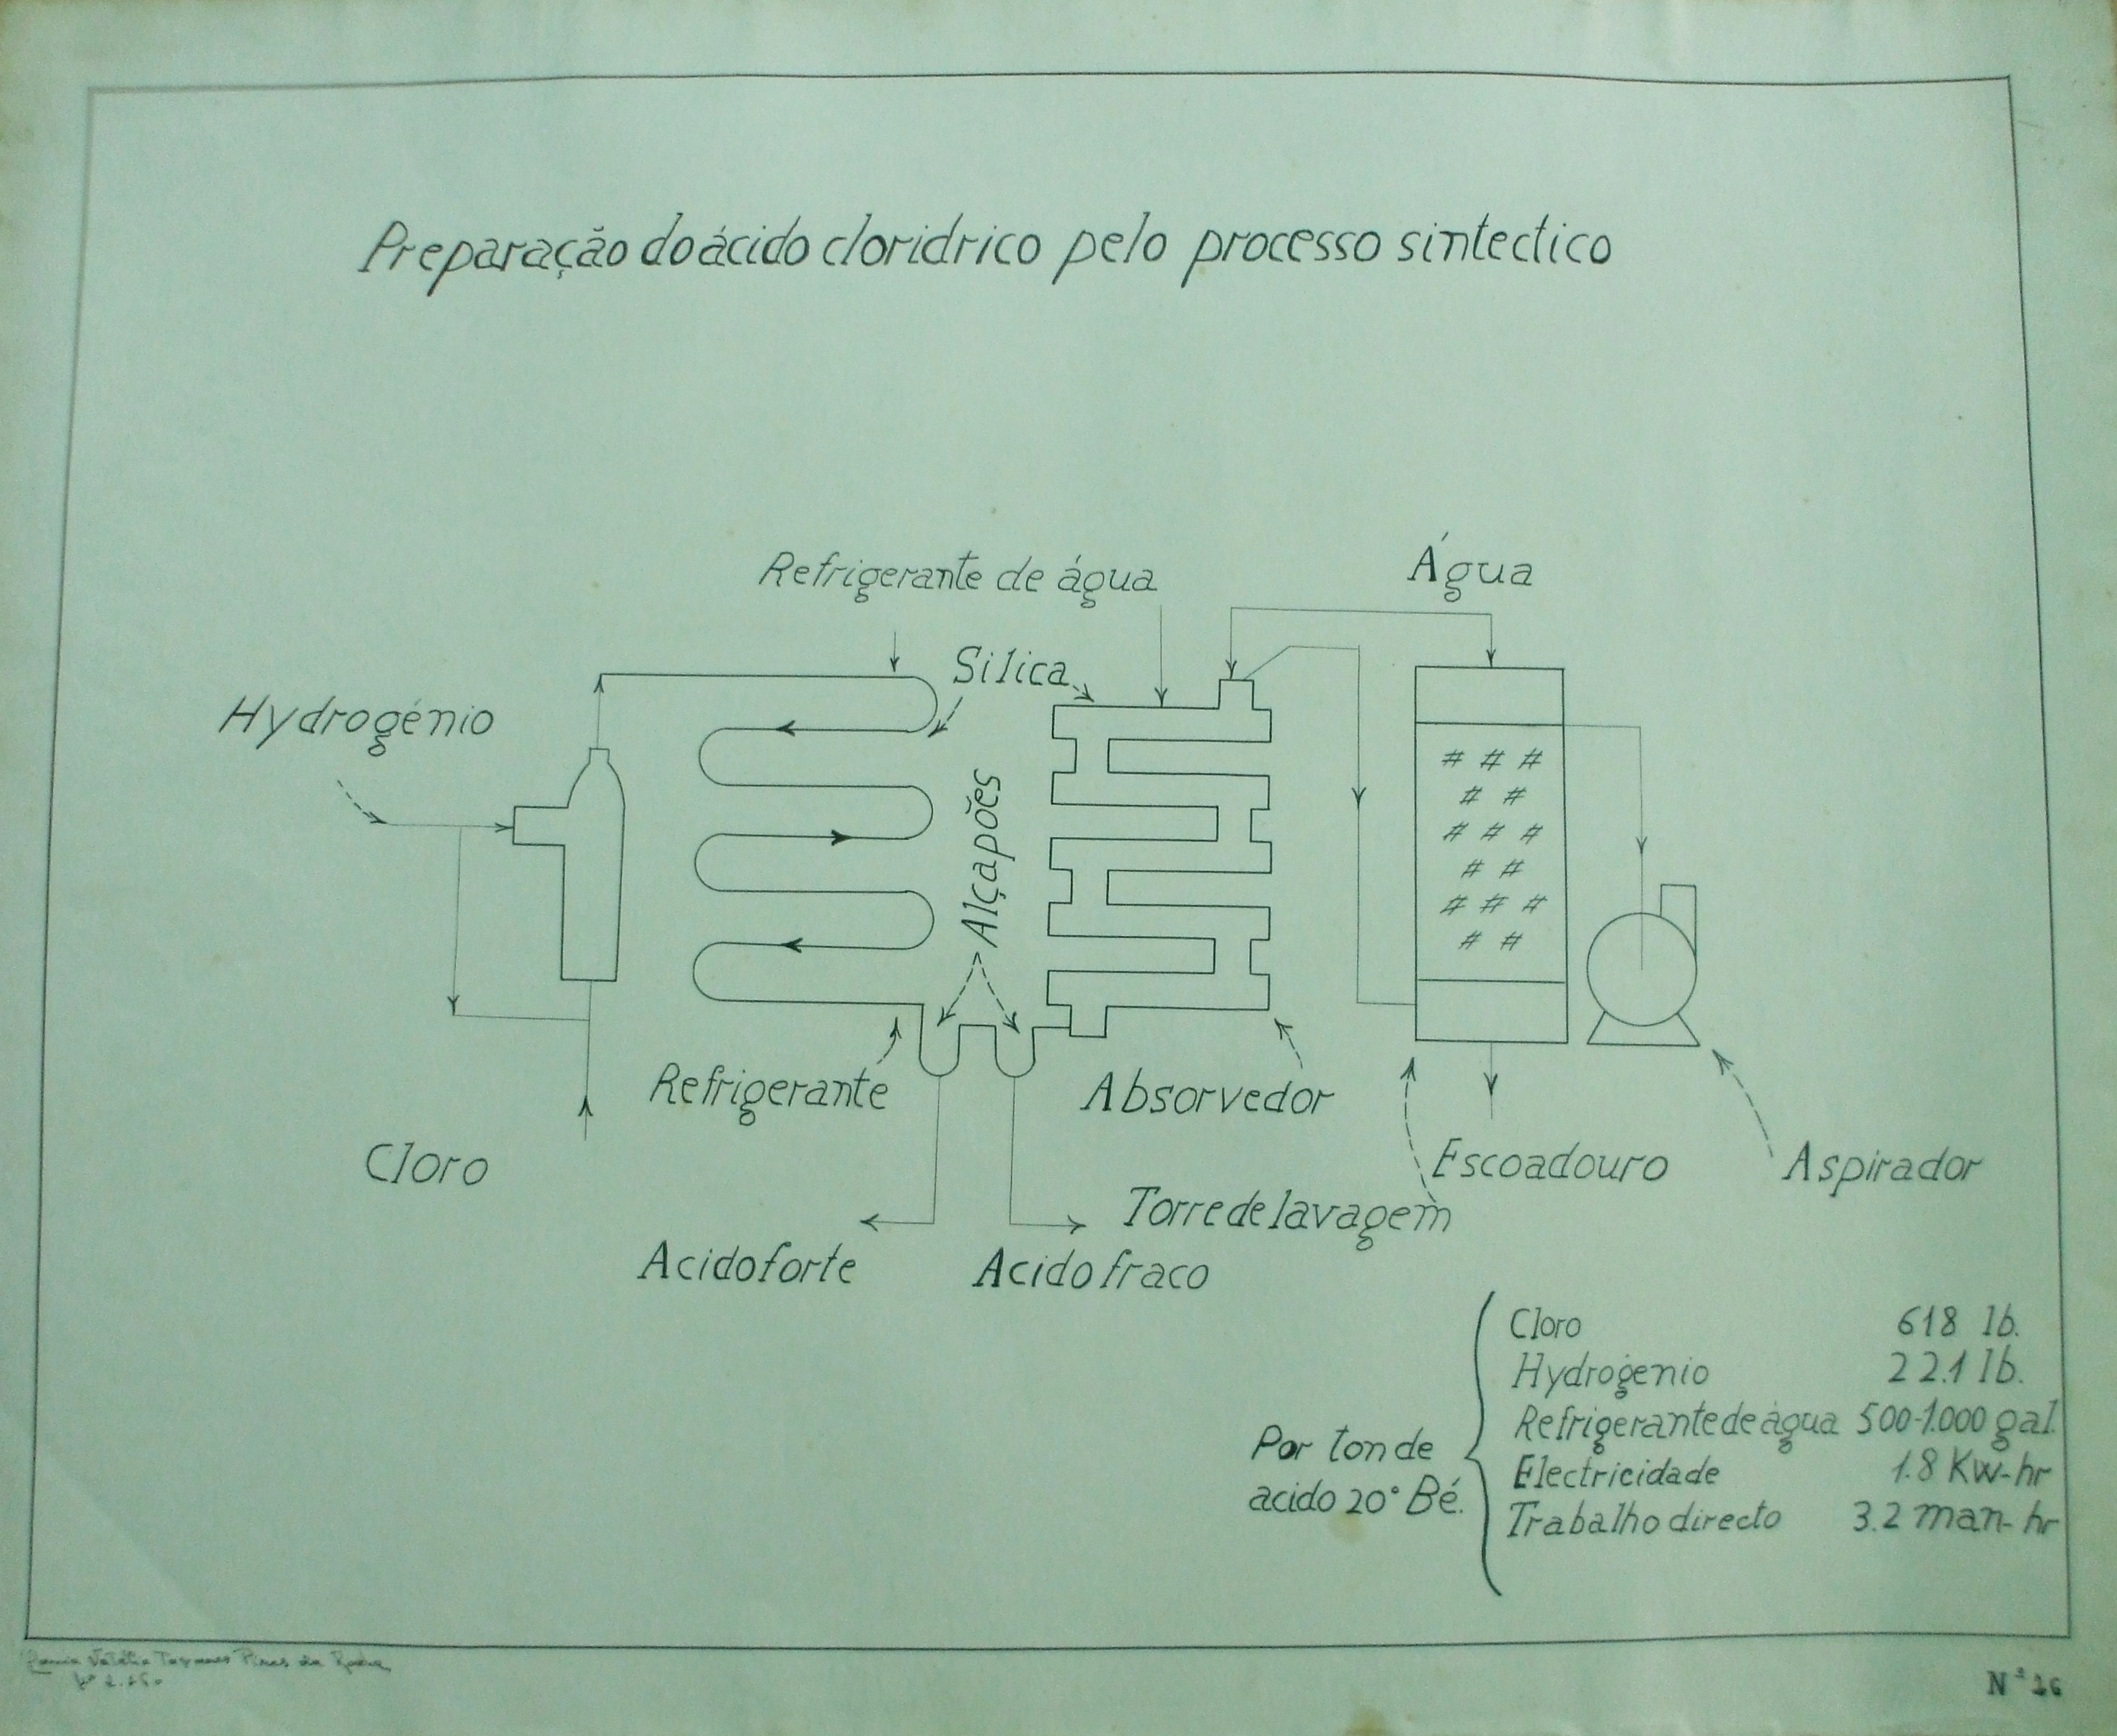 Preparação do ácido cloridrico pelo processo sintectico
Refrigerante de água
Água
Silica
Hydrogénio
Alçapões
Refrigerante
Absorvedor
Cloro
Escoadouro
Aspirador
Torre de lavagem
Acido forte
Acido fraco
Por ton de
acido 20° Bé.
Cloro 618 lb.
Hydrogenio 22.1 lb.
Refrigerante de água 500-1.000 gal.
Electricidade 1.8 Kw-hr
Trabalho directo 3.2 man-hr
Pires da Rocha
Nº 16